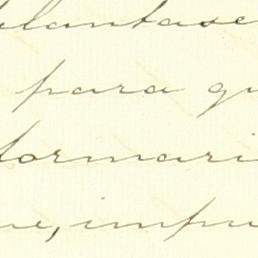 plantase
para qu
formari
ue, impu